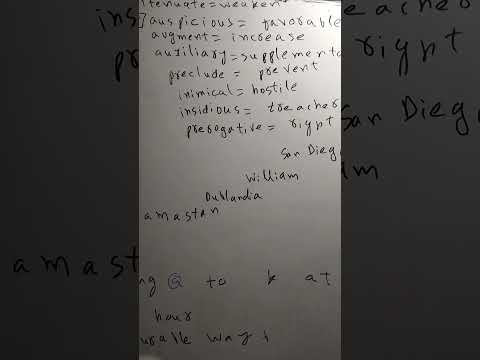 tenuate=weaken
auspicious= favorable
augment= increase
auxiliary=supplementa
preclude = prevent
inimical= hostile
insidious= treacher
prerogative= right
San Dieg
William
Dublandia
amastan
ng Q to k at
hour
urable way i